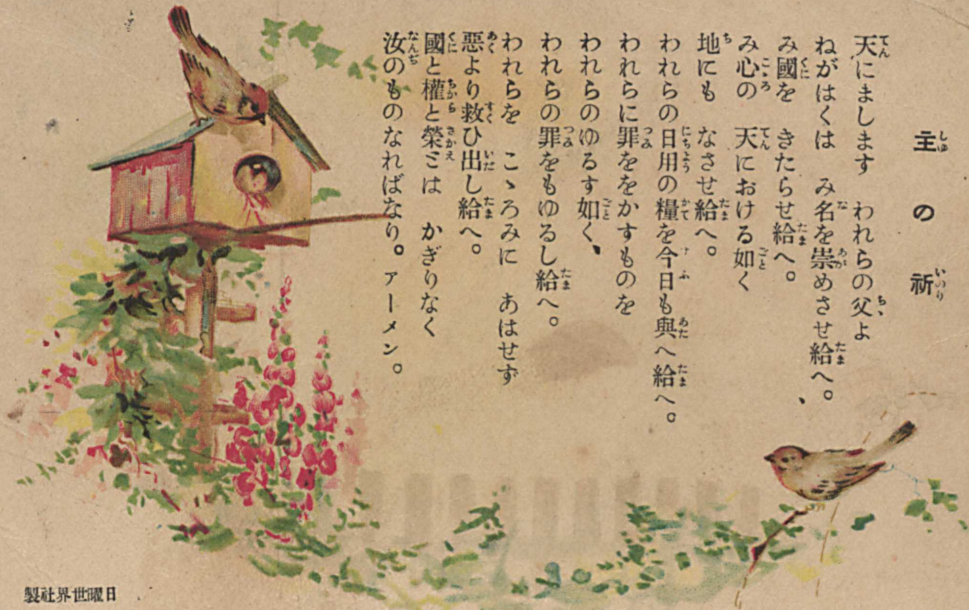 主の祈
天にまします われらの父よ
ねがはくは み名を崇めさせ給へ。
み國を きたらせ給へ。
み心の 天における如く
地にも なさせ給へ。
われらの日用の糧を今日も與へ給へ。
われらに罪ををかすものを
われらのゆるす如く、
われらの罪をもゆるし給へ。
われらを こゝろみに あはせず
惡より救ひ出し給へ。
國と權と榮とは かぎりなく
汝のものなればなり。アーメン。
日曜世界社製